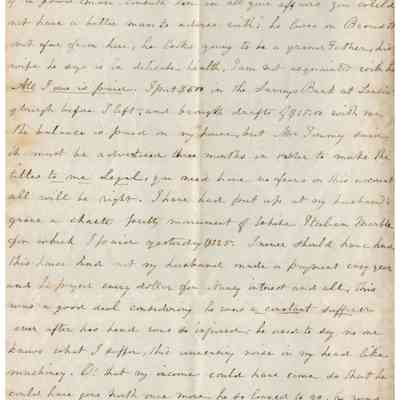 not have a better man to advise with; he lives in Brown St
not far from here, he looks going to be a grand Father, his
wife he says is in delicate health, I am not acquainted with her
All I owe is poured. I put $500 in the Savings Bank at
before I left, and brought drafts $900.00 with me
the balance is paid on my house, but Mr. says
it must be advertised three months in order to make the
titles to me legal, you need have no fears on this account
all will be right. I have had put up at my husband's
grave a chaste pretty monument of white Italian Marble
for which I paid yesterday $125. I never should have had
this house had not my husband made a payment every year
and he payed every dollar of money interest and all, this
was a good deal considering he was a constant sufferer
ever after his head was so injured; he used to say no one
knows what I suffer, this unceasing noise in my head like
machinery. O! that my income could have come so that he
could have gone North once more he so longed to go,